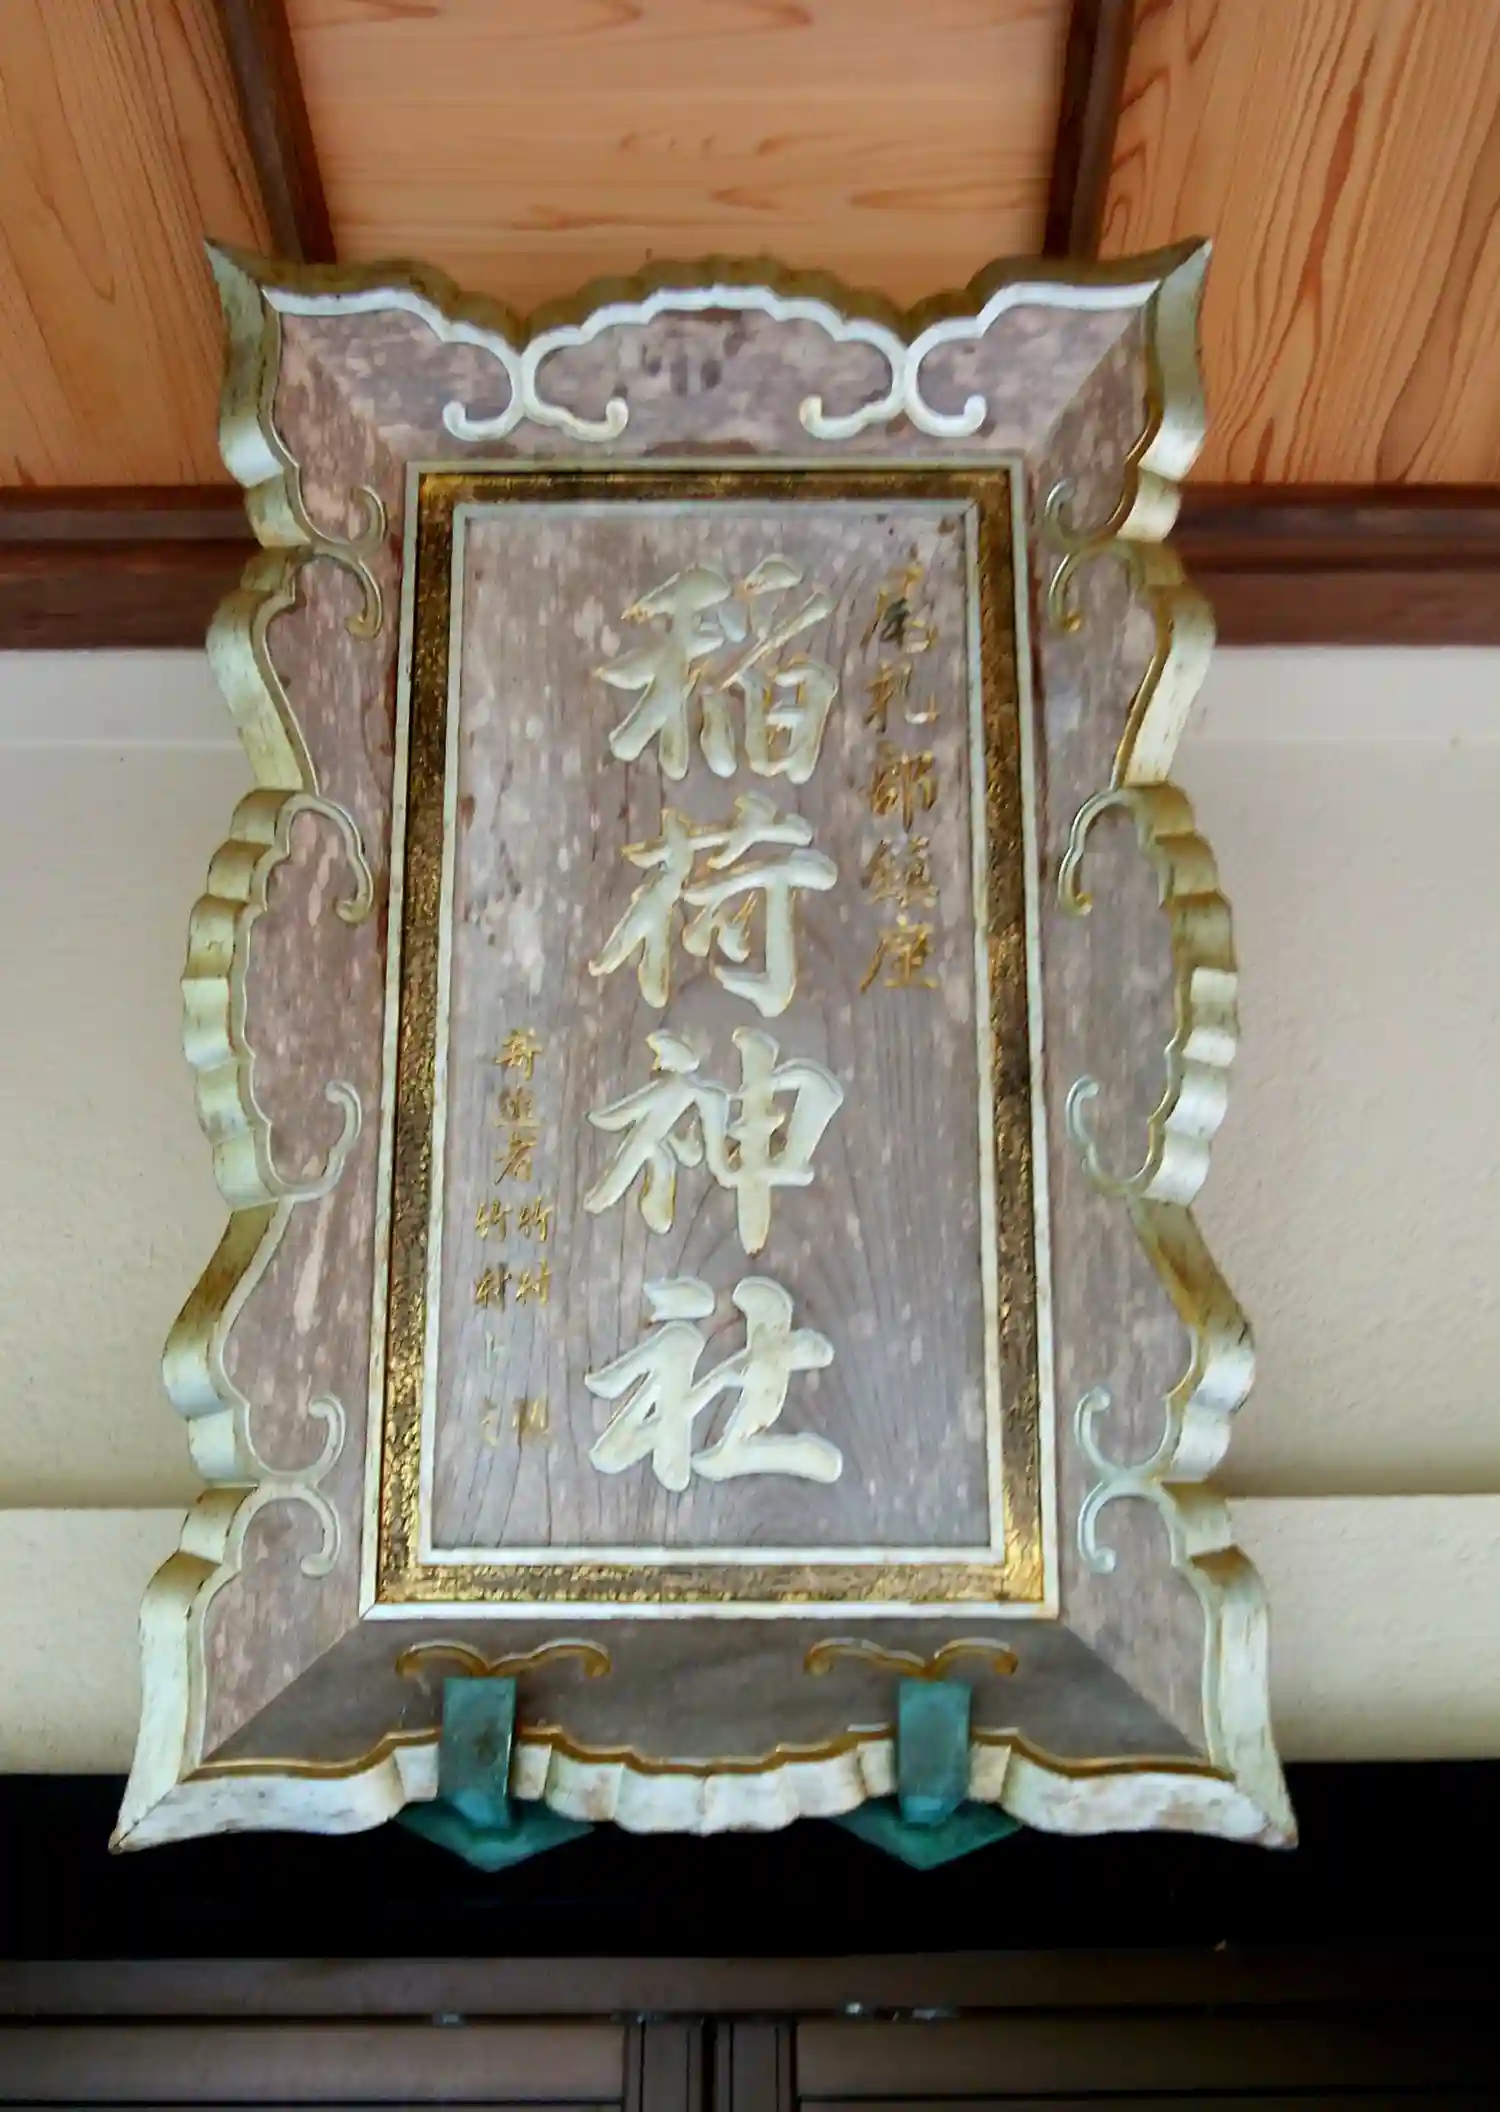 尾札部鎮座
稲荷神社
寄進者 竹村
竹村